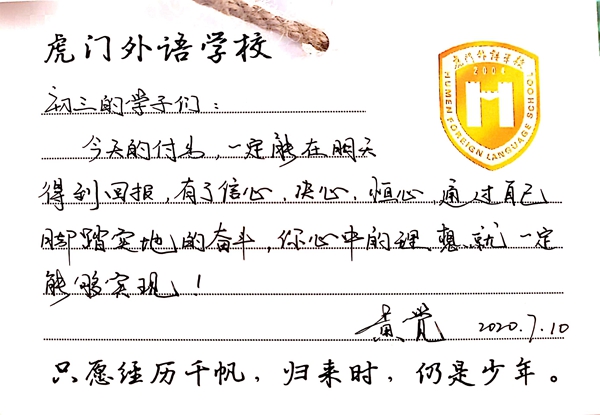 虎门外语学校
虎门外语学校
2004
HUMEN FOREIGN LANGUAGE SCHOOL
初三的学子们：
今天的付出，一定能在明天
得到回报，有了信心，决心，恒心，通过自己
脚踏实地的奋斗，你心中的理想就一定
能够实现！
黄觉 2020.7.10
只愿经历千帆，归来时，仍是少年。